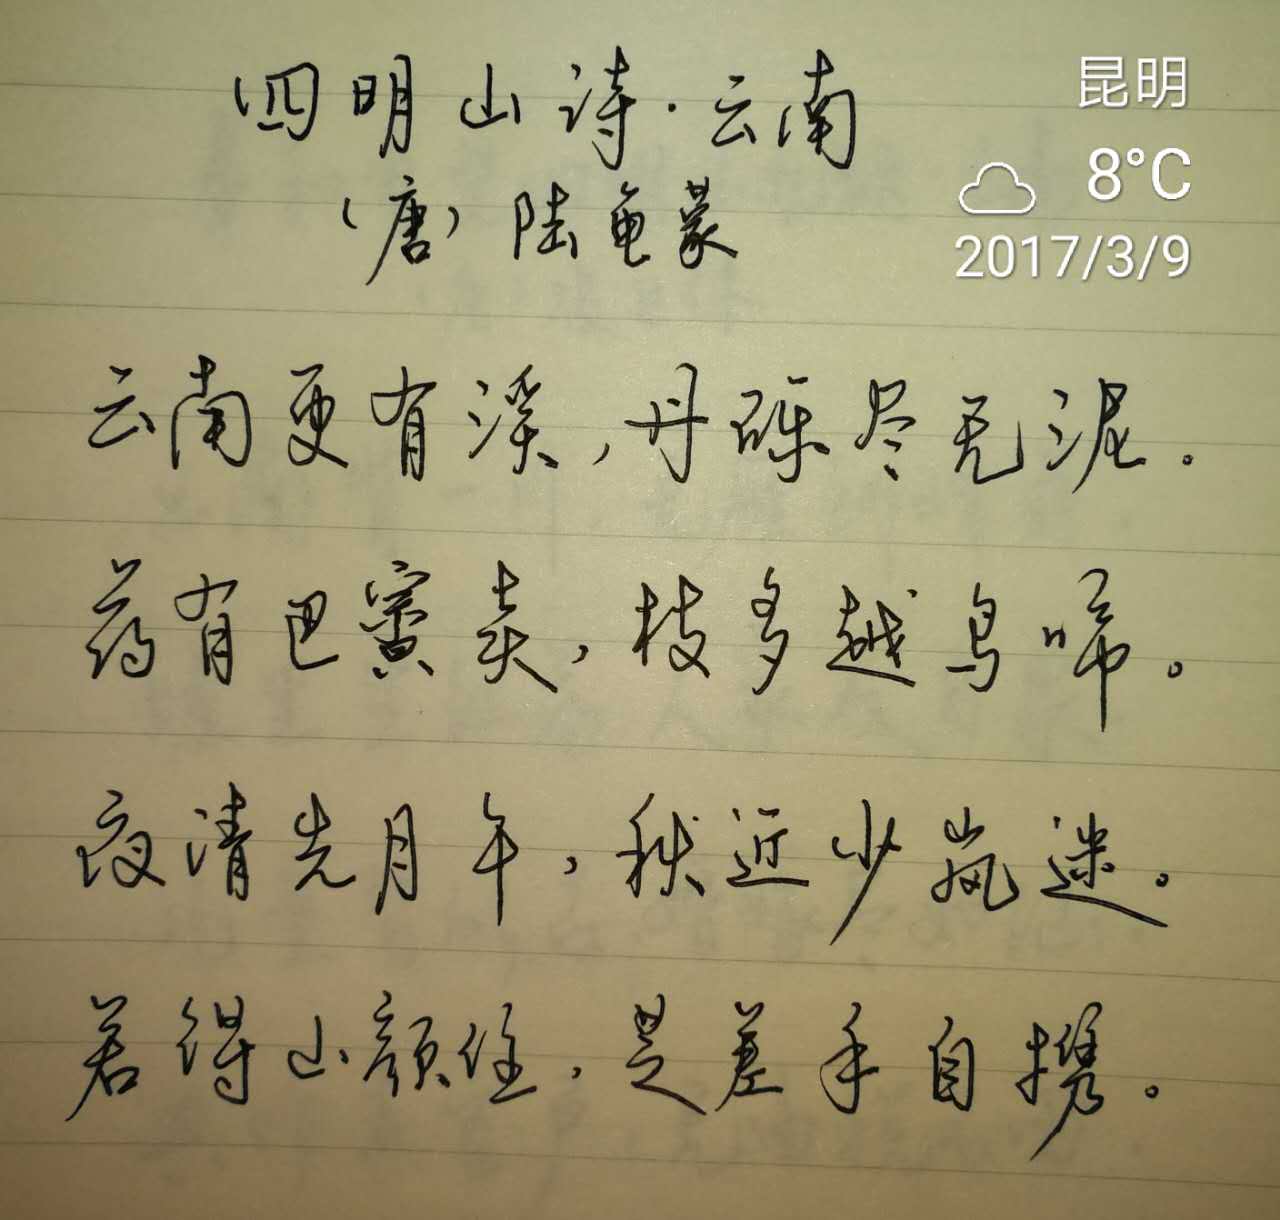 四明山诗·云南
昆明
8°C
2017/3/9
(唐)陆龟蒙
云南更有溪,丹砾尽无泥。
药有巴賨卖,枝多越鸟啼。
夜清先月午,秋近少岚迷。
若得山颜住,是差手自携。